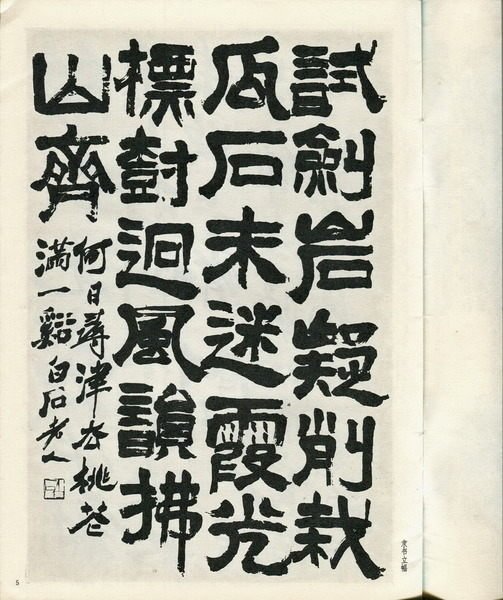 試劍岩疑削栽
瓜石未迷霞光
標樹迥風韻拂
山齊
何日尋津去桃花
滿一谿白石老人
隶书立幅
5